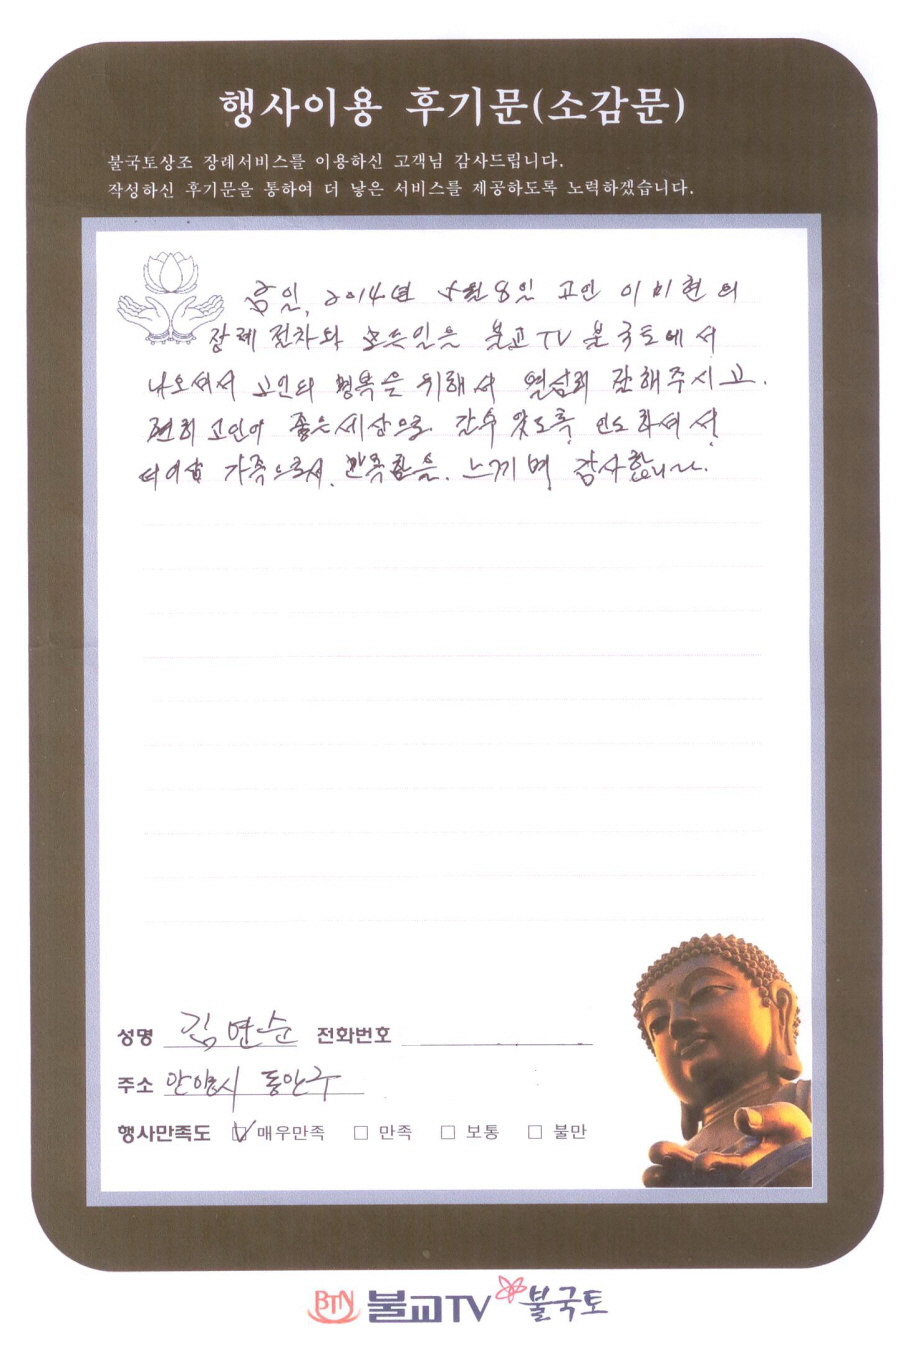 행사이용 후기문(소감문)
불국토상조 장례서비스를 이용하신 고객님 감사드립니다.
작성하신 후기문을 통하여 더 낳은 서비스를 제공하도록 노력하겠습니다.
금일, 2014년 5월 8일 고인 이미현의
장례 절차와 모든일을 불교TV 불국토에서
나오셔서 고인의 명복을 위해서 열심히 잘해주시고.
편히 고인이 좋은세상으로 갈수 있도록 인도하셔서
가족으로서. 만족함을. 느끼며 감사합니다.
성명 김연순 전화번호
주소 안양시 동안구
행사만족도 ☑ 매우만족 □ 만족 □ 보통 □ 불만
BTN 불교TV 불국토